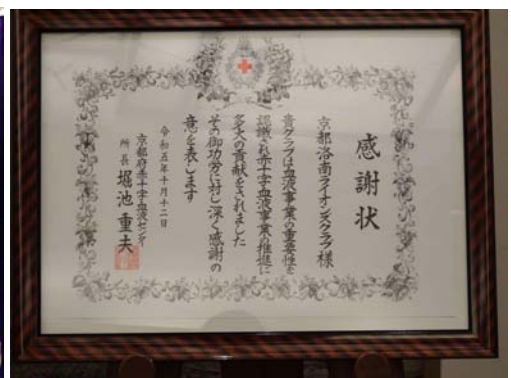 感謝状
京都洛南ライオンズクラブ様
貴クラブは血液事業の重要性を
認識され赤十字血液事業の推進に
多大の貢献をされました
その御功労に対し深く感謝の
意を表します
令和五年十月十二日
京都府赤十字血液センター
所長 堀池重夫